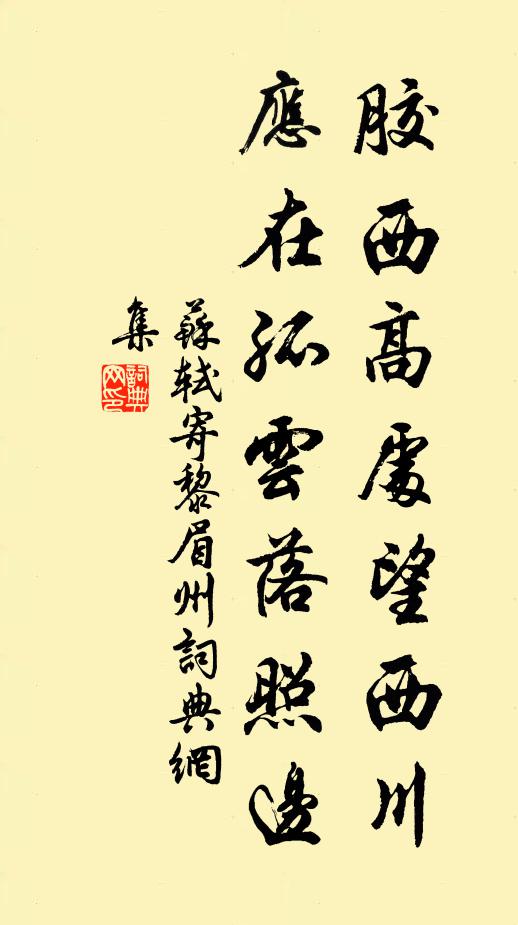 胶西高處望西川
應在孤雲落照邊
蘇軾寄黎眉州詞典網
集
詞典
网印